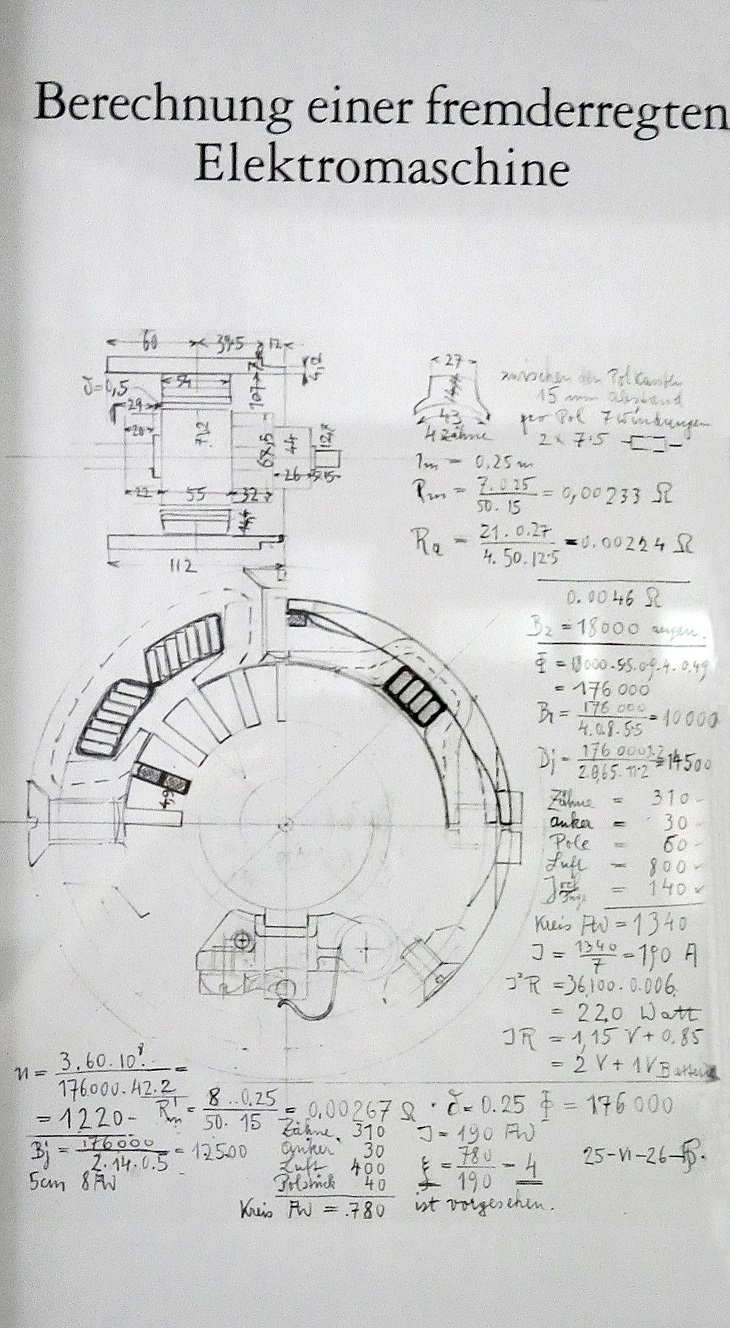 Berechnung einer fremderregten
Elektromaschine
60 39.5 12
δ=0,5
54
107
29
20
712
68,5
44
26
22 55 32
112
27
43
4 Zähne
zwischen den Polkanten
15 mm abstand
pro Pol 7 windungen
2 x 7.5
lm = 0,25 m
Rm = 7.0.25 / 50.15 = 0,00233 Ω
Ra = 21.0.27 / 4.50.12.5 = 0.00224 Ω
0.0046 Ω
Bz = 18000 angen.
Φ =
= 176 000
= 176 000 / 4.0.8.5.5 = 10000
Bj = = 14500
Zähne = 310
anker = 30
Pole = 60
Luft = 800
Joch = 140
Kreis AW = 1340
J = 1340 / 7 = 190 A
J²R = 36,100.0.006
= 220 Watt
JR = 1,15 V + 0.85
= 2 V + 1V Batterie
4,9
n = 3.60.10⁸ / 176000.42.2 =
= 1220
Bj = 176000 / 2.14.0.5 = 12500
5cm 8 AW
R'm = 8..0.25 / 50.15 = 0,00267 Ω · δ = 0.25 Φ = 176 000
Zähne 310
anker 30
Luft 400
Polstück 40
Kreis AW = 780
J = 190 AW
ξ = 780 / 190 = 4
ist vorgesehen.
25-VI-26